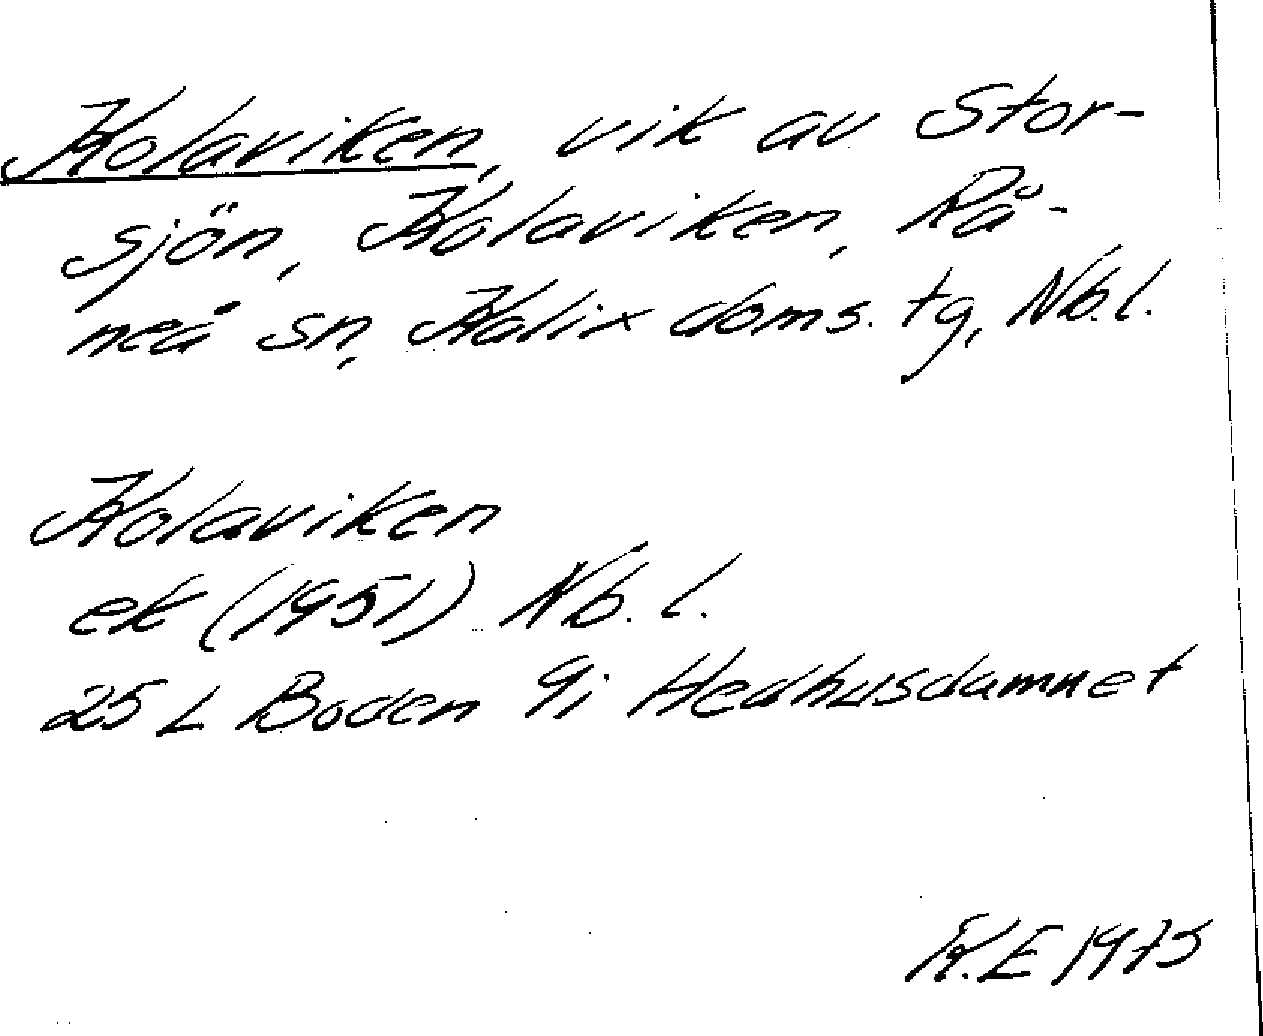 Kolaviken, vik av Stor-
sjön, Kolaviken, Rå-
neå sn, Kalix doms. tg, Nb.l.
Kolaviken
ek (1951) Nb. l.
25 L Boden 9i Hedhusdamnet
K.E 1975